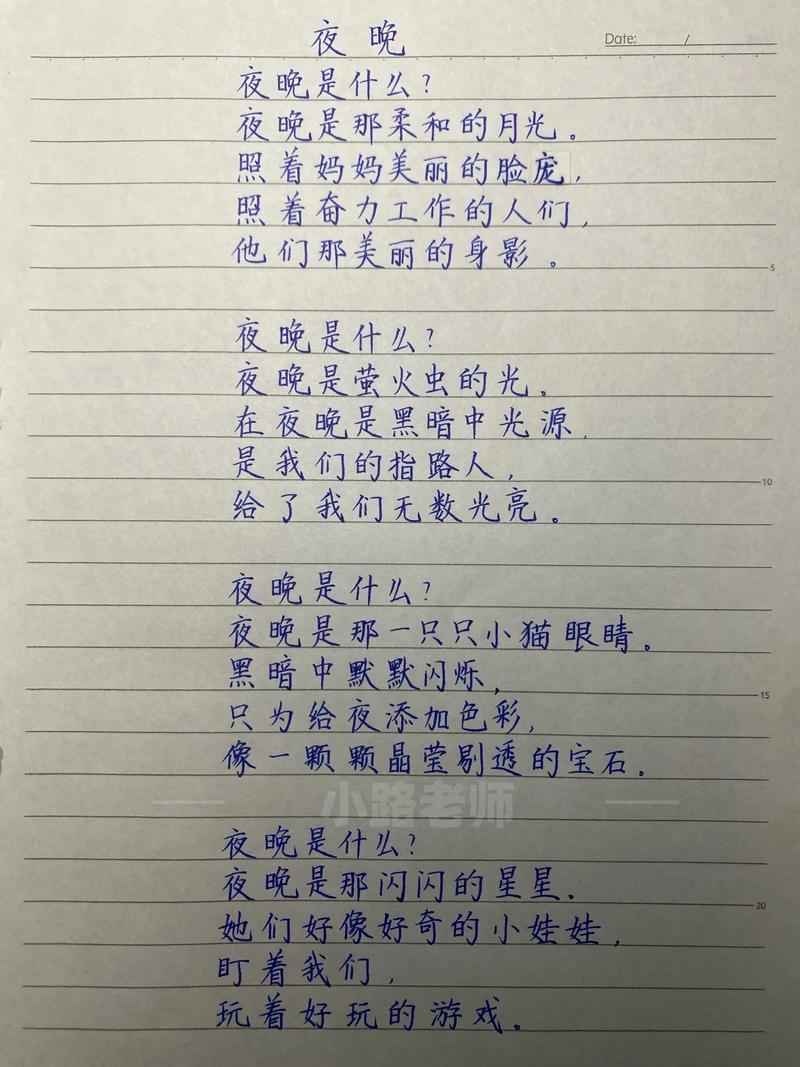 夜晚
Date: /
夜晚是什么？
夜晚是那柔和的月光。
照着妈妈美丽的脸庞，
照着奋力工作的人们，
他们那美丽的身影。
5
夜晚是什么？
夜晚是萤火虫的光。
在夜晚是黑暗中光源，
是我们的指路人，
10
给了我们无数光亮。
夜晚是什么？
夜晚是那一只只小猫眼睛。
黑暗中默默闪烁，
15
只为给夜添加色彩，
像一颗颗晶莹剔透的宝石。
小路老师
夜晚是什么？
夜晚是那闪闪的星星．
20
她们好像好奇的小娃娃，
盯着我们，
玩着好玩的游戏。